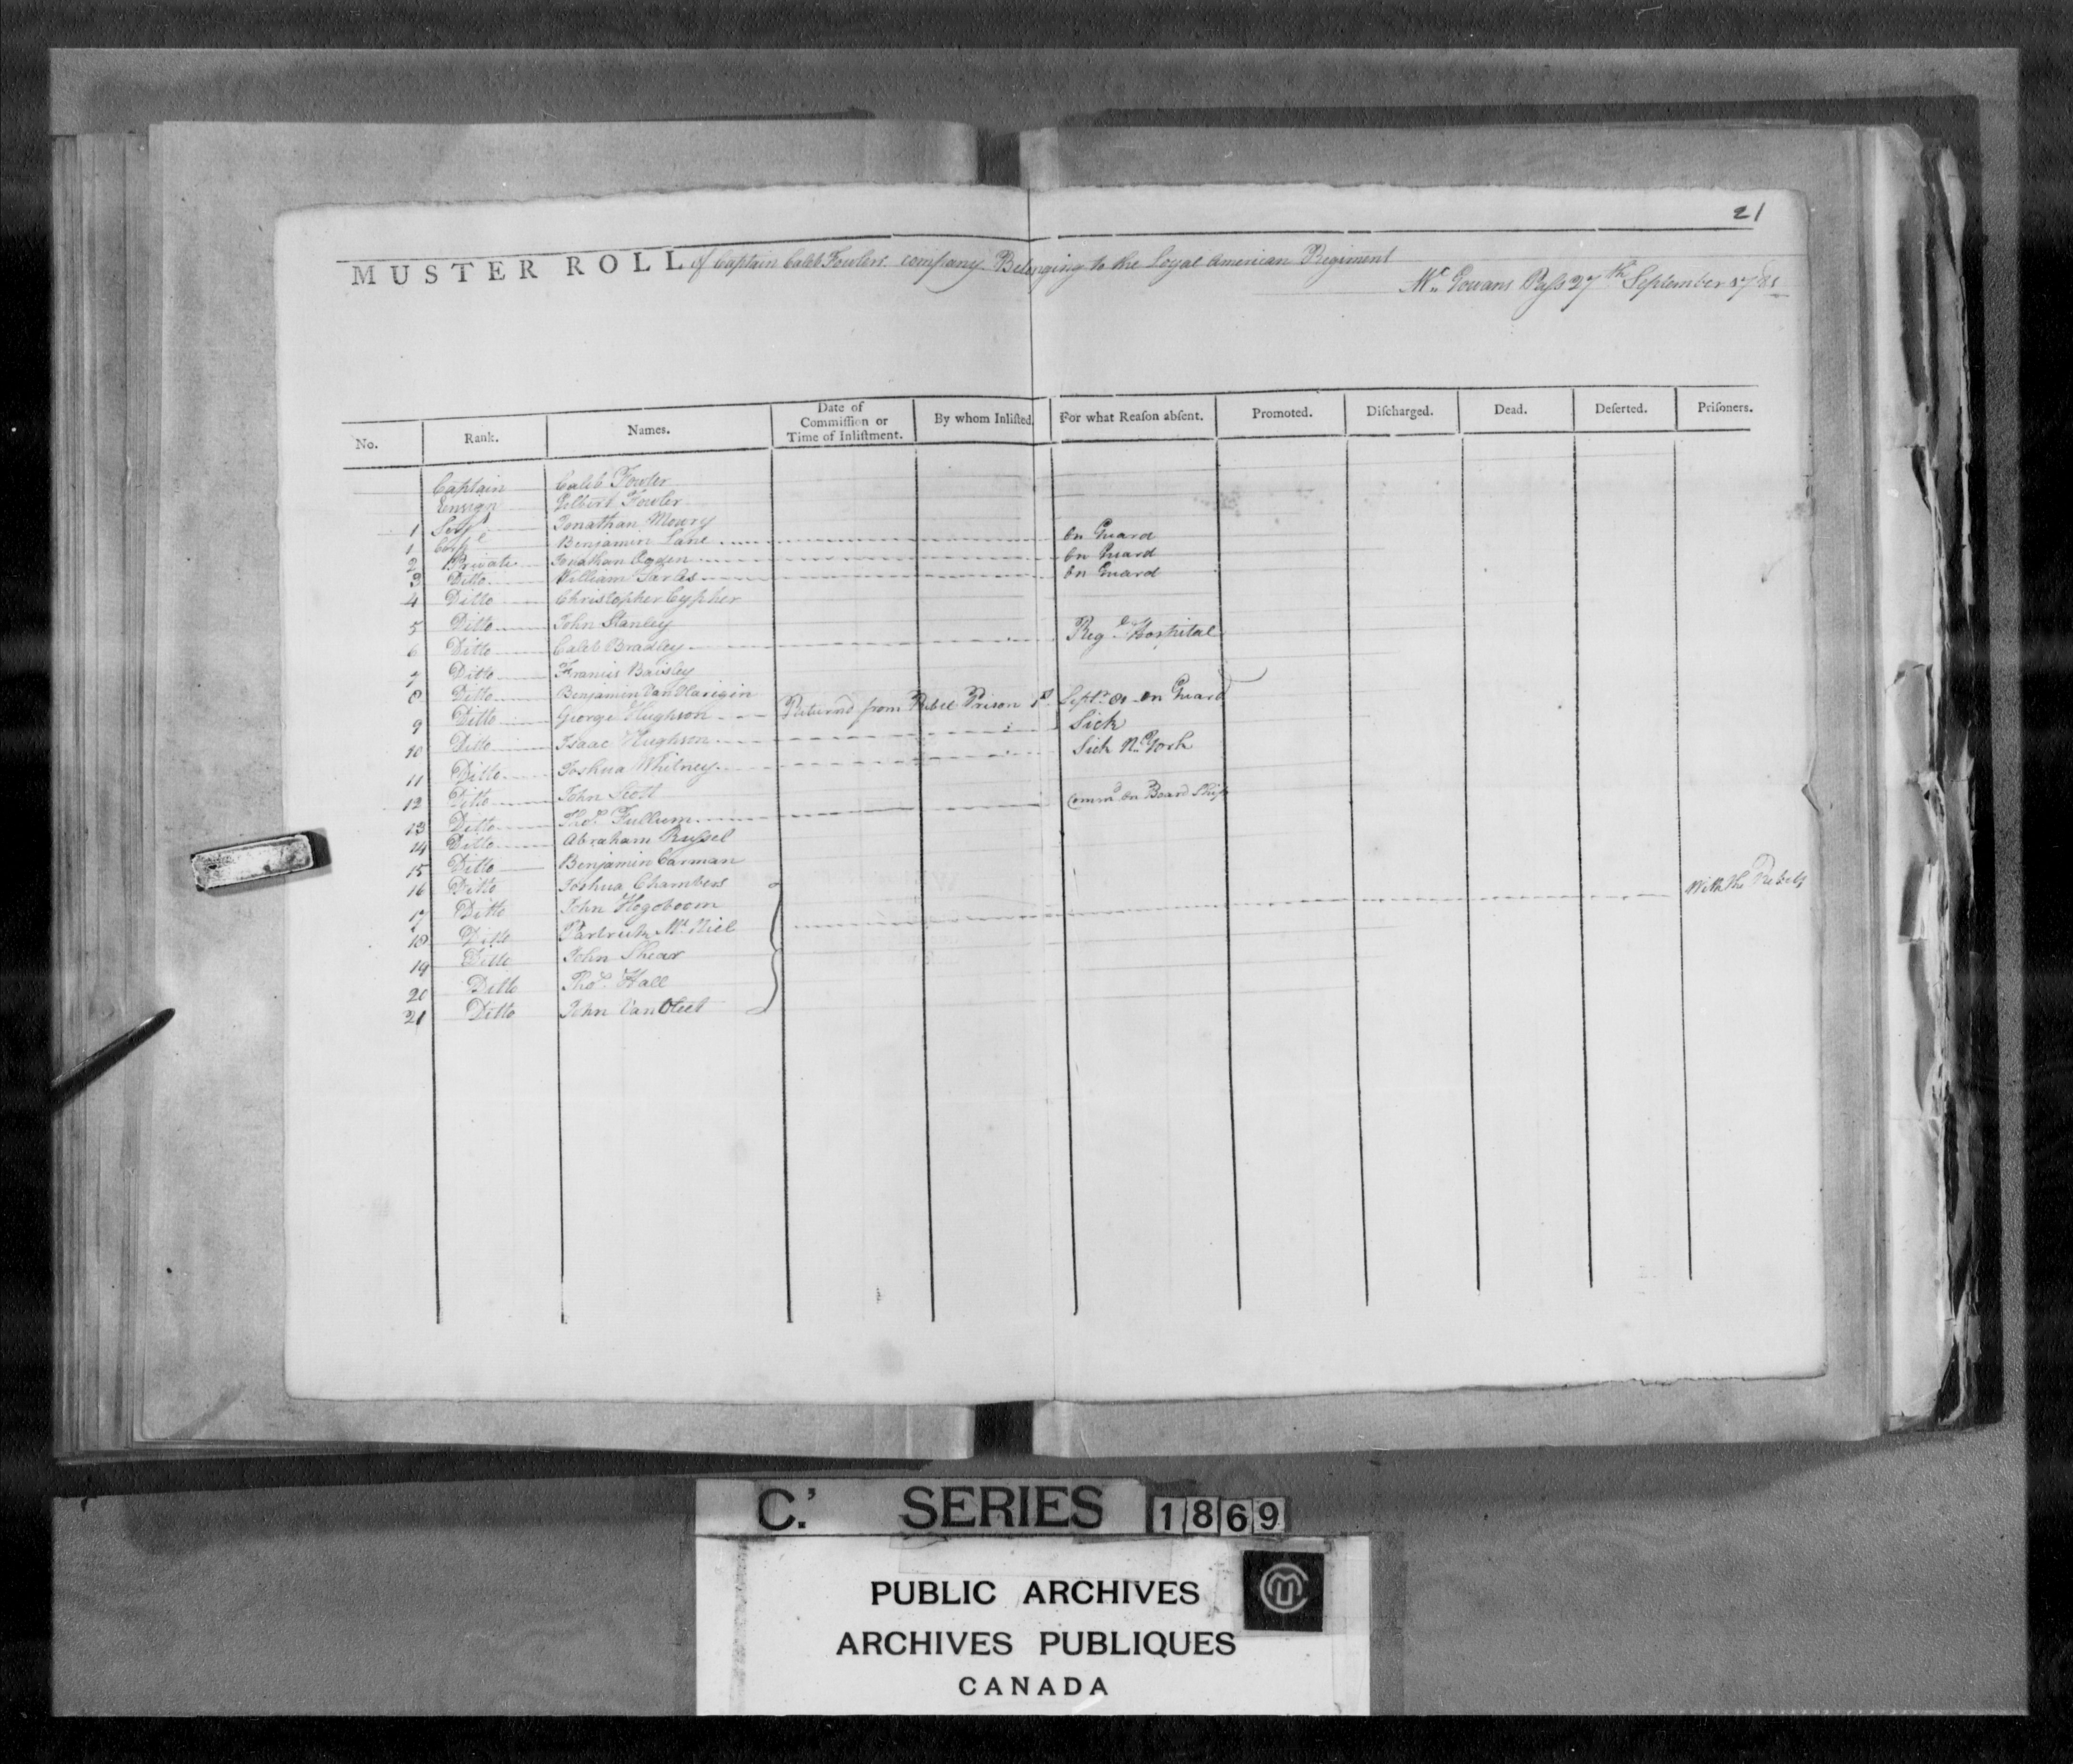 21
MUSTER ROLL of Captain Caleb Fowlers company Belonging to the Loyal American Regiment
Mc Gowans Pass 27th September 1781
No. Rank. Names. Date of Commiſſion or Time of Inliſtment. By whom Inliſted. For what Reaſon abſent. Promoted. Diſcharged. Dead. Deſerted. Priſoners.
Captain Caleb Fowler
Ensign Gilbert Fowler
1 Serjt Jonathan Mowry
1 Corpl Benjamin Lane On Guard
2 Private Jonathan Ogden On Guard
3 Ditto William Sarles On Guard
4 Ditto Christopher Cypher
5 Ditto John Stanley
6 Ditto Caleb Bradley Regtl Hospital
7 Ditto Francis Baisley
8 Ditto Benjamin Van
9 Ditto George Hughson Returnd from Rebel Prison 1st Septr 81 on Guard
10 Ditto Isaac Hughson Sick
11 Ditto Joshua Whitney Sick N. York
12 Ditto John Scott
13 Ditto Thos. Fullum Commd On Board Ship
14 Ditto Abraham Russel
15 Ditto Benjamin Carman
16 Ditto Joshua Chambers
17 Ditto John Hogoboom
18 Ditto Partrick Mc Niel With the Rebels
19 Ditto John Shear
20 Ditto Thos. Hall
21 Ditto John Van Vleet
C.' SERIES 1869
PUBLIC ARCHIVES
ARCHIVES PUBLIQUES
CANADA